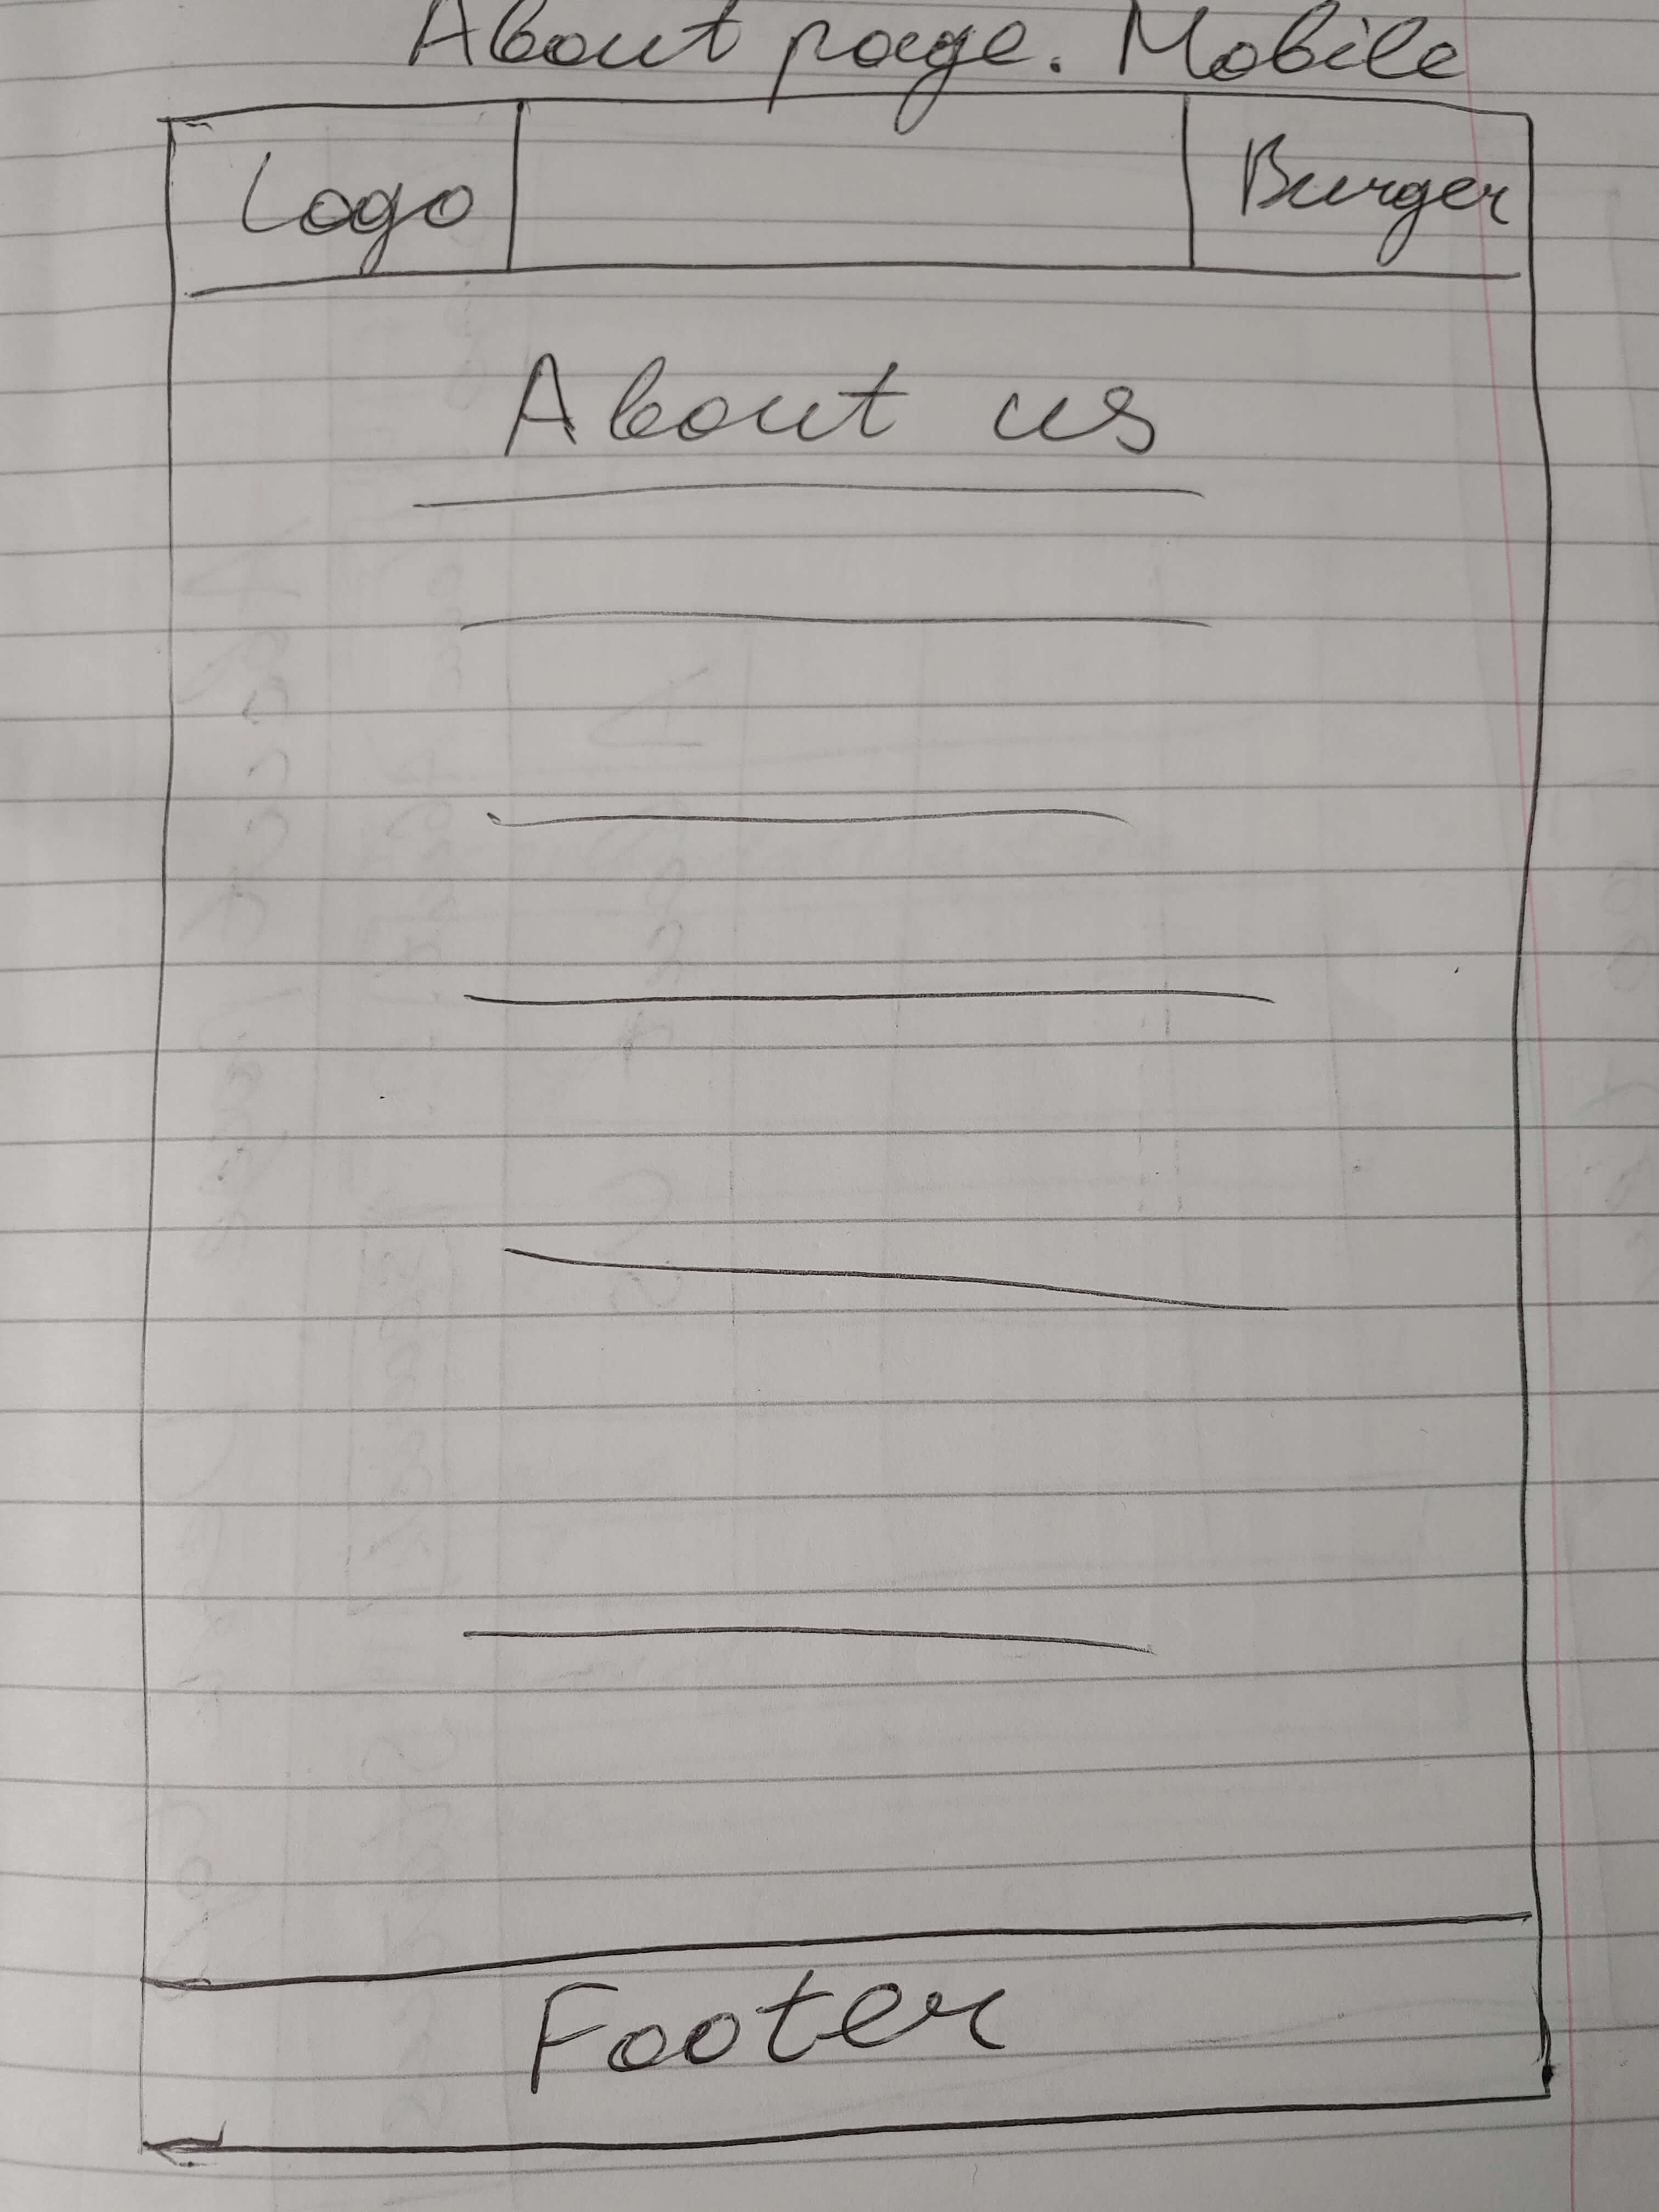 About page. Mobile
Logo
Burger
About us
Footer